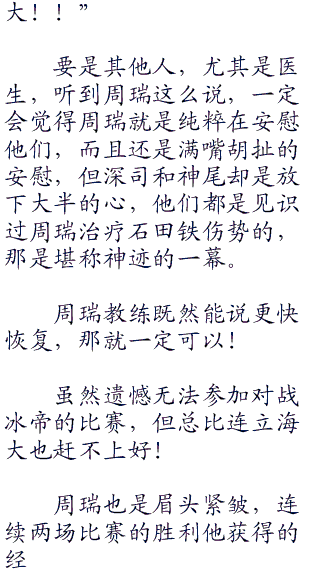 大！！”
要是其他人，尤其是医
生，听到周瑞这么说，一定
会觉得周瑞就是纯粹在安慰
他们，而且还是满嘴胡扯的
安慰，但深司和神尾却是放
下大半的心，他们都是见识
过周瑞治疗石田铁伤势的，
那是堪称神迹的一幕。
周瑞教练既然能说更快
恢复，那就一定可以！
虽然遗憾无法参加对战
冰帝的比赛，但总比连立海
大也赶不上好！
周瑞也是眉头紧皱，连
续两场比赛的胜利他获得的
经